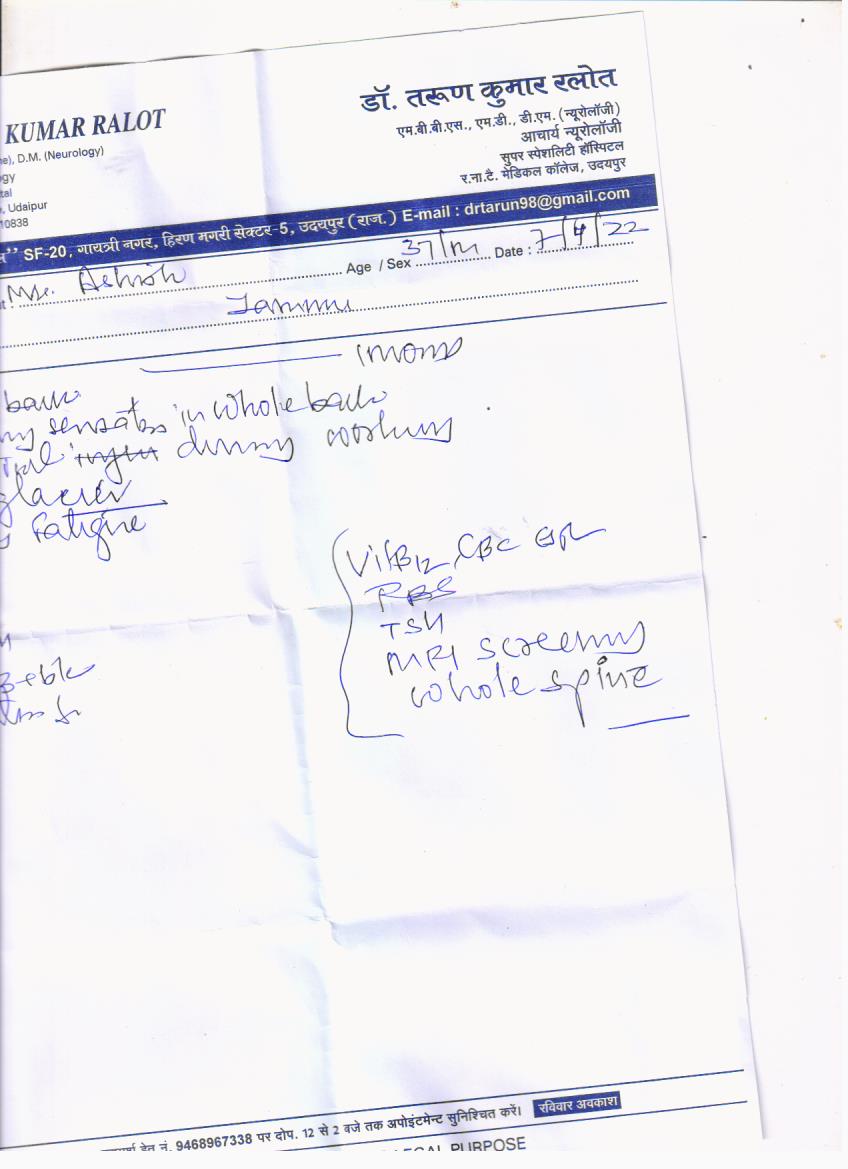 डॉ. तरूण कुमार रलोत
KUMAR RALOT
एम.बी.बी.एस., एम.डी., डी.एम. (न्यूरोलॉजी)
e), D.M. (Neurology)
आचार्य न्यूरोलॉजी
gy
सुपर स्पेशलिटी हॉस्पिटल
tal
र.ना.टै. मेडिकल कॉलेज, उदयपुर
, Udaipur
10838
" SF-20, गायत्री नगर, हिरण मगरी सेक्टर-5, उदयपुर (राज.) E-mail : drtarun98@gmail.com
Mr. Ashish Age / Sex 37/M Date : 7/4/22
Jammu
back
in whole back
during
glacier
Fatigue
VitB12, CBC
RBS
TSH
MRI screening
whole spine
नं. 9468967338 पर दोप. 12 से 2 बजे तक अपोइंटमेन्ट सुनिश्चित करें। रविवार अवकाश
LEGAL PURPOSE